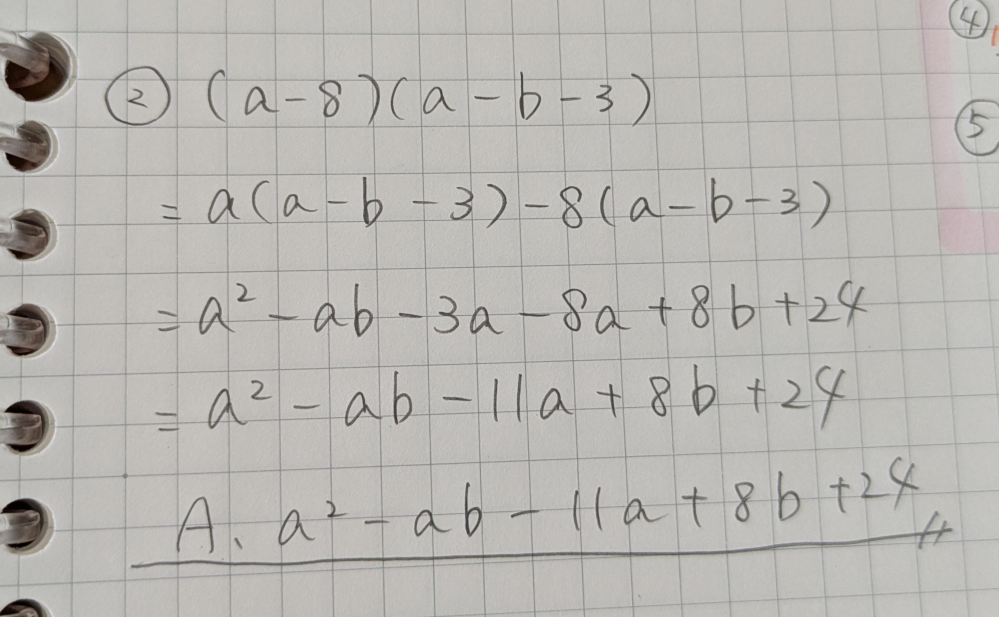 ② (a-8)(a-b-3)
= a(a-b-3)-8(a-b-3)
= a² - ab - 3a - 8a + 8b + 24
= a² - ab - 11a + 8b + 24
A. a² - ab - 11a + 8b + 24
④
⑤